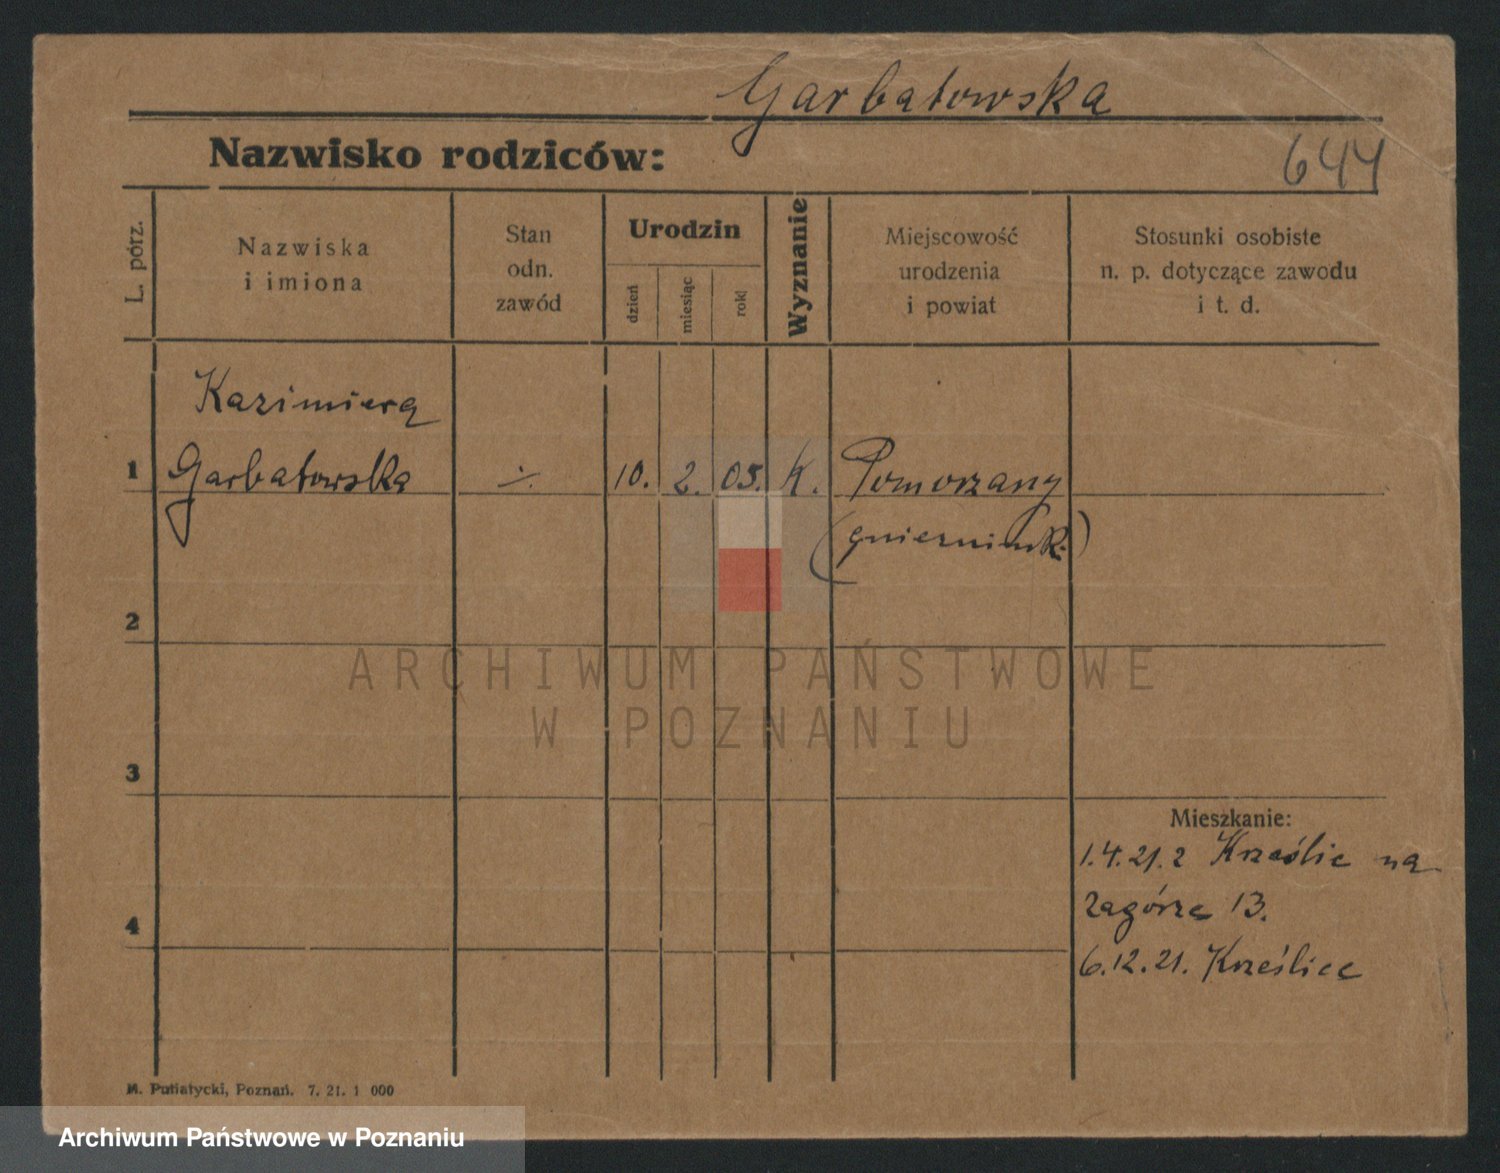 Garbatowska
Nazwisko rodziców:
644
L. porz.
Nazwiska
i imiona
Stan
odn.
zawód
Urodzin
dzień
miesiąc
rok
Wyznanie
Miejscowość
urodzenia
i powiat
Stosunki osobiste
n. p. dotyczące zawodu
i t. d.
Kazimiera
1 Garbatowska ÷ 10. 2. 05. K. Pomorzany
2
3
4
Mieszkanie:
1.4.21. z Krześlic na
Zagórze 13.
6.12.21. Krześlice
M. Putiatycki, Poznań. 7. 21. 1 000
ARCHIWUM PAŃSTWOWE
W POZNANIU
Archiwum Państwowe w Poznaniu